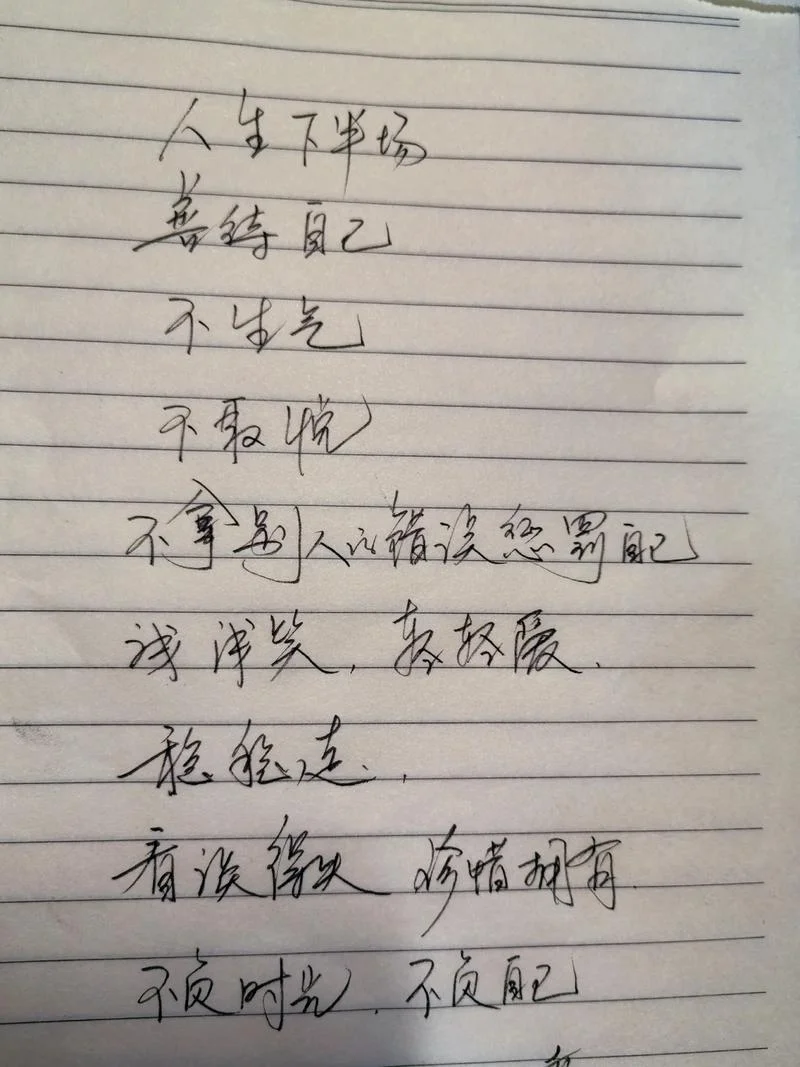 人生下半场
善待自己
不生气
不取悦
不拿别人的错误惩罚自己
浅浅笑，轻轻爱、
稳稳走、
看淡得失 珍惜拥有.
不负时光，不负自己